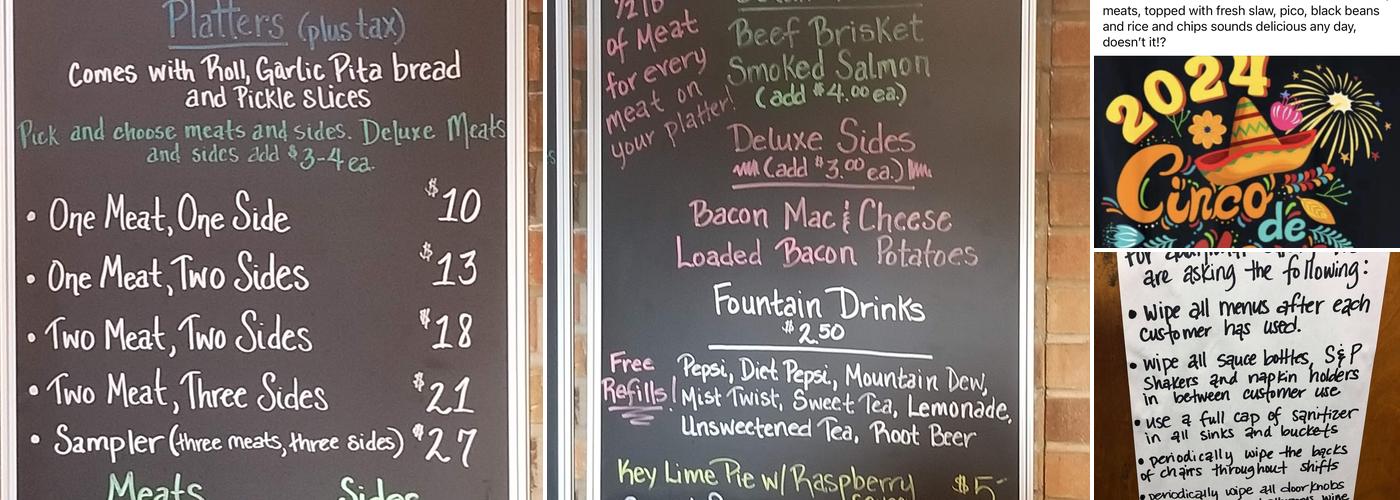 Platters (plus tax)
Comes with Roll, Garlic Pita bread
and Pickle slices
Pick and choose meats and sides. Deluxe Meats
and sides add $3-4 ea.
• One Meat, One Side $10
• One Meat, Two Sides $13
• Two Meat, Two Sides $18
• Two Meat, Three Sides $21
• Sampler (three meats, three sides) $27
Meats Sides
1/2 lb
of Meat
for every
meat on
your platter!
Beef Brisket
Smoked Salmon
(add $4.00 ea.)
Deluxe Sides
(add $3.00 ea.)
Bacon Mac & Cheese
Loaded Bacon Potatoes
Fountain Drinks
$2.50
Free
Refills!
Pepsi, Diet Pepsi, Mountain Dew,
Mist Twist, Sweet Tea, Lemonade,
Unsweetened Tea, Root Beer
Key Lime Pie w/ Raspberry $5
meats, topped with fresh slaw, pico, black beans
and rice and chips sounds delicious any day,
doesn't it!?
2024
Cinco
de
are asking the following:
• Wipe all menus after each
customer has used.
• wipe all sauce bottles, S&P
Shakers and napkin holders
in between customer use
• use a full cap of sanitizer
in all sinks and buckets
• periodically wipe the backs
of chairs throughout shifts
• periodically wipe all door knobs